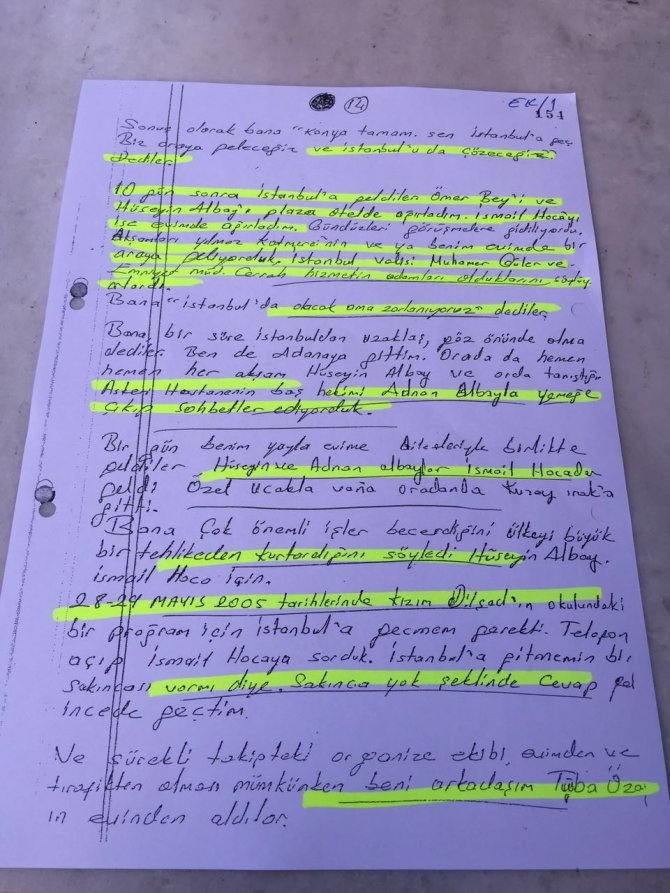 14
EK/1
154
Sonuç olarak bana "Konya tamam. sen İstanbul'a geç
Biz araya geleceğiz ve istanbul'u da çözeceğiz"
Dediler.
10 gün sonra istanbul'a geldiler Ömer Bey'i ve
Hüseyin Albay'ı plaza otelde ağırladım. ismail Hocayı
ise evimde ağırladım. Gündüzleri görüşmelere gidiliyordu.
Akşamları yılmaz ve ya benim evimde bir
araya geliyorduk. istanbul valisi Muhamer Güler ve
Emniyet müd. Cerrah hizmetin adamları olduklarını
Bana "istanbul'da olacak ama zorlanıyoruz" dediler.
Bana bir süre istanbuldan uzaklaş, göz önünde olma
dediler. Ben de Adanaya gittim. Orada da hemen
hemen her akşam Hüseyin Albay ve orda tanıştığım
Asker Hastanenin baş hekimi Adnan Albayla yemeğe
çıkıp sohbetler ediyorduk.
Bir gün benim yayla evime Aileleriyle birlikte
geldiler. Hüseyin ve Adnan albaylar ismail Hocada
geldi Özel uçakla oradanda Kuzay ırak'a
gitti.
Bana Çok önemli işler becerdiğini ülkeyi büyük
bir tehlikeden kurtardığını söyledi Hüseyin Albay.
ismail Hoca için.
28-29 MAYIS 2005 tarihlerinde kızım Dilşad'ın okulundaki
bir proğram için istanbul'a geçmem gerekti. Telefon
açıp ismail Hocaya sorduk. İstanbul'a gitmemin bir
sakıncası varmı diye. Sakınca yok şeklinde Cevap gel
incede geçtim.
Ve sürekli takipteki organize ekibi, evimden ve
trafikten alması mümkünken beni arkadaşım Tüba Özay
ın evinden aldılar.